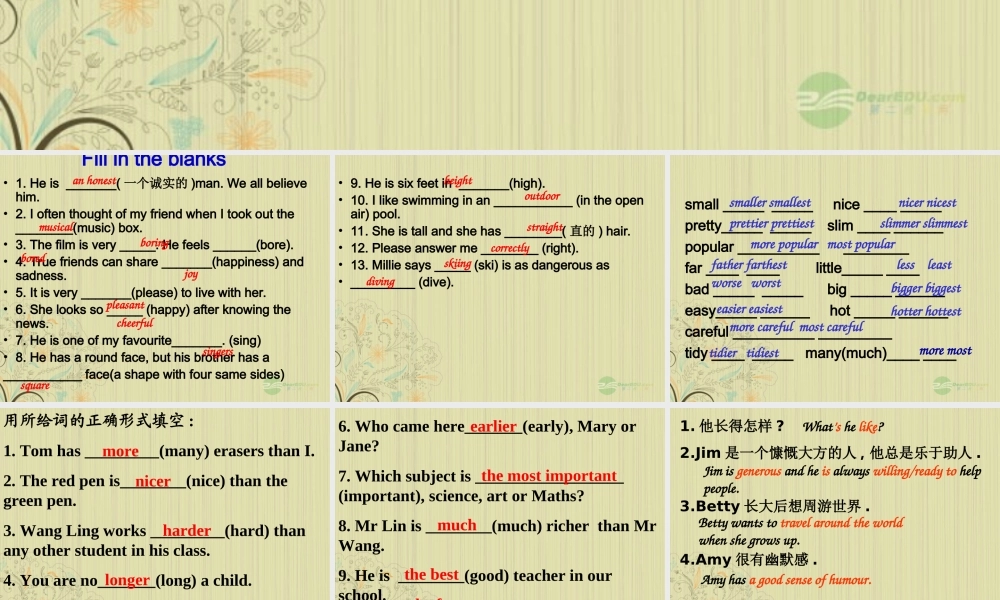 DearEDU.com
Fill in the blanks
• 1. He is an honest _______( 一个诚实的 )man. We all believe
him.
• 2. I often thought of my friend when I took out the
________(music) box. musical
• 3. The film is very _____. He feels ______(bore). boring
• 4. True friends can share _______(happiness) and bored
sadness. joy
• 5. It is very _______(please) to live with her.
• 6. She looks so _____ (happy) after knowing the pleasant
news. cheerful
• 7. He is one of my favourite_______. (sing)
• 8. He has a round face, but his brother has a singers
___________ face(a shape with four same sides)
square
• 9. He is six feet in _______(high). height
• 10. I like swimming in an ___________ (in the open outdoor
air) pool.
• 11. She is tall and she has ________( 直的 ) hair. straight
• 12. Please answer me ________ (right). correctly
• 13. Millie says _____ (ski) is as dangerous as skiing
• _________ (dive). diving
small smaller smallest nice nicer nicest
pretty prettier prettiest slim slimmer slimmest
popular more popular most popular
far father farthest little less least
bad worse worst big bigger biggest
easy easier easiest hot hotter hottest
careful more careful most careful
tidy tidier tidiest many(much) more most
用所给词的正确形式填空 :
1. Tom has more (many) erasers than I.
2. The red pen is nicer (nice) than the
green pen.
3. Wang Ling works harder (hard) than
any other student in his class.
4. You are no longer (long) a child.
6. Who came here earlier (early), Mary or
Jane?
7. Which subject is the most important
(important), science, art or Maths?
8. Mr Lin is much (much) richer than Mr
Wang.
9. He is the best (good) teacher in our
school.
1. 他长得怎样 ? What's he like?
2.Jim 是一个慷慨大方的人 , 他总是乐于助人 .
Jim is generous and he is always willing/ready to help
people.
3.Betty 长大后想周游世界 .
Betty wants to travel around the world
when she grows up.
4.Amy 很有幽默感 .
Amy has a good sense of humour.